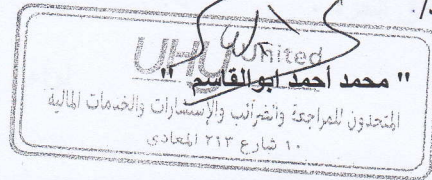 UHY United
" محمد أحمد ابوالقاسم "
المتحدون للمراجعة والضرائب والإستشارات والخدمات المالية
١٠ شارع ٢١٣ المعادى